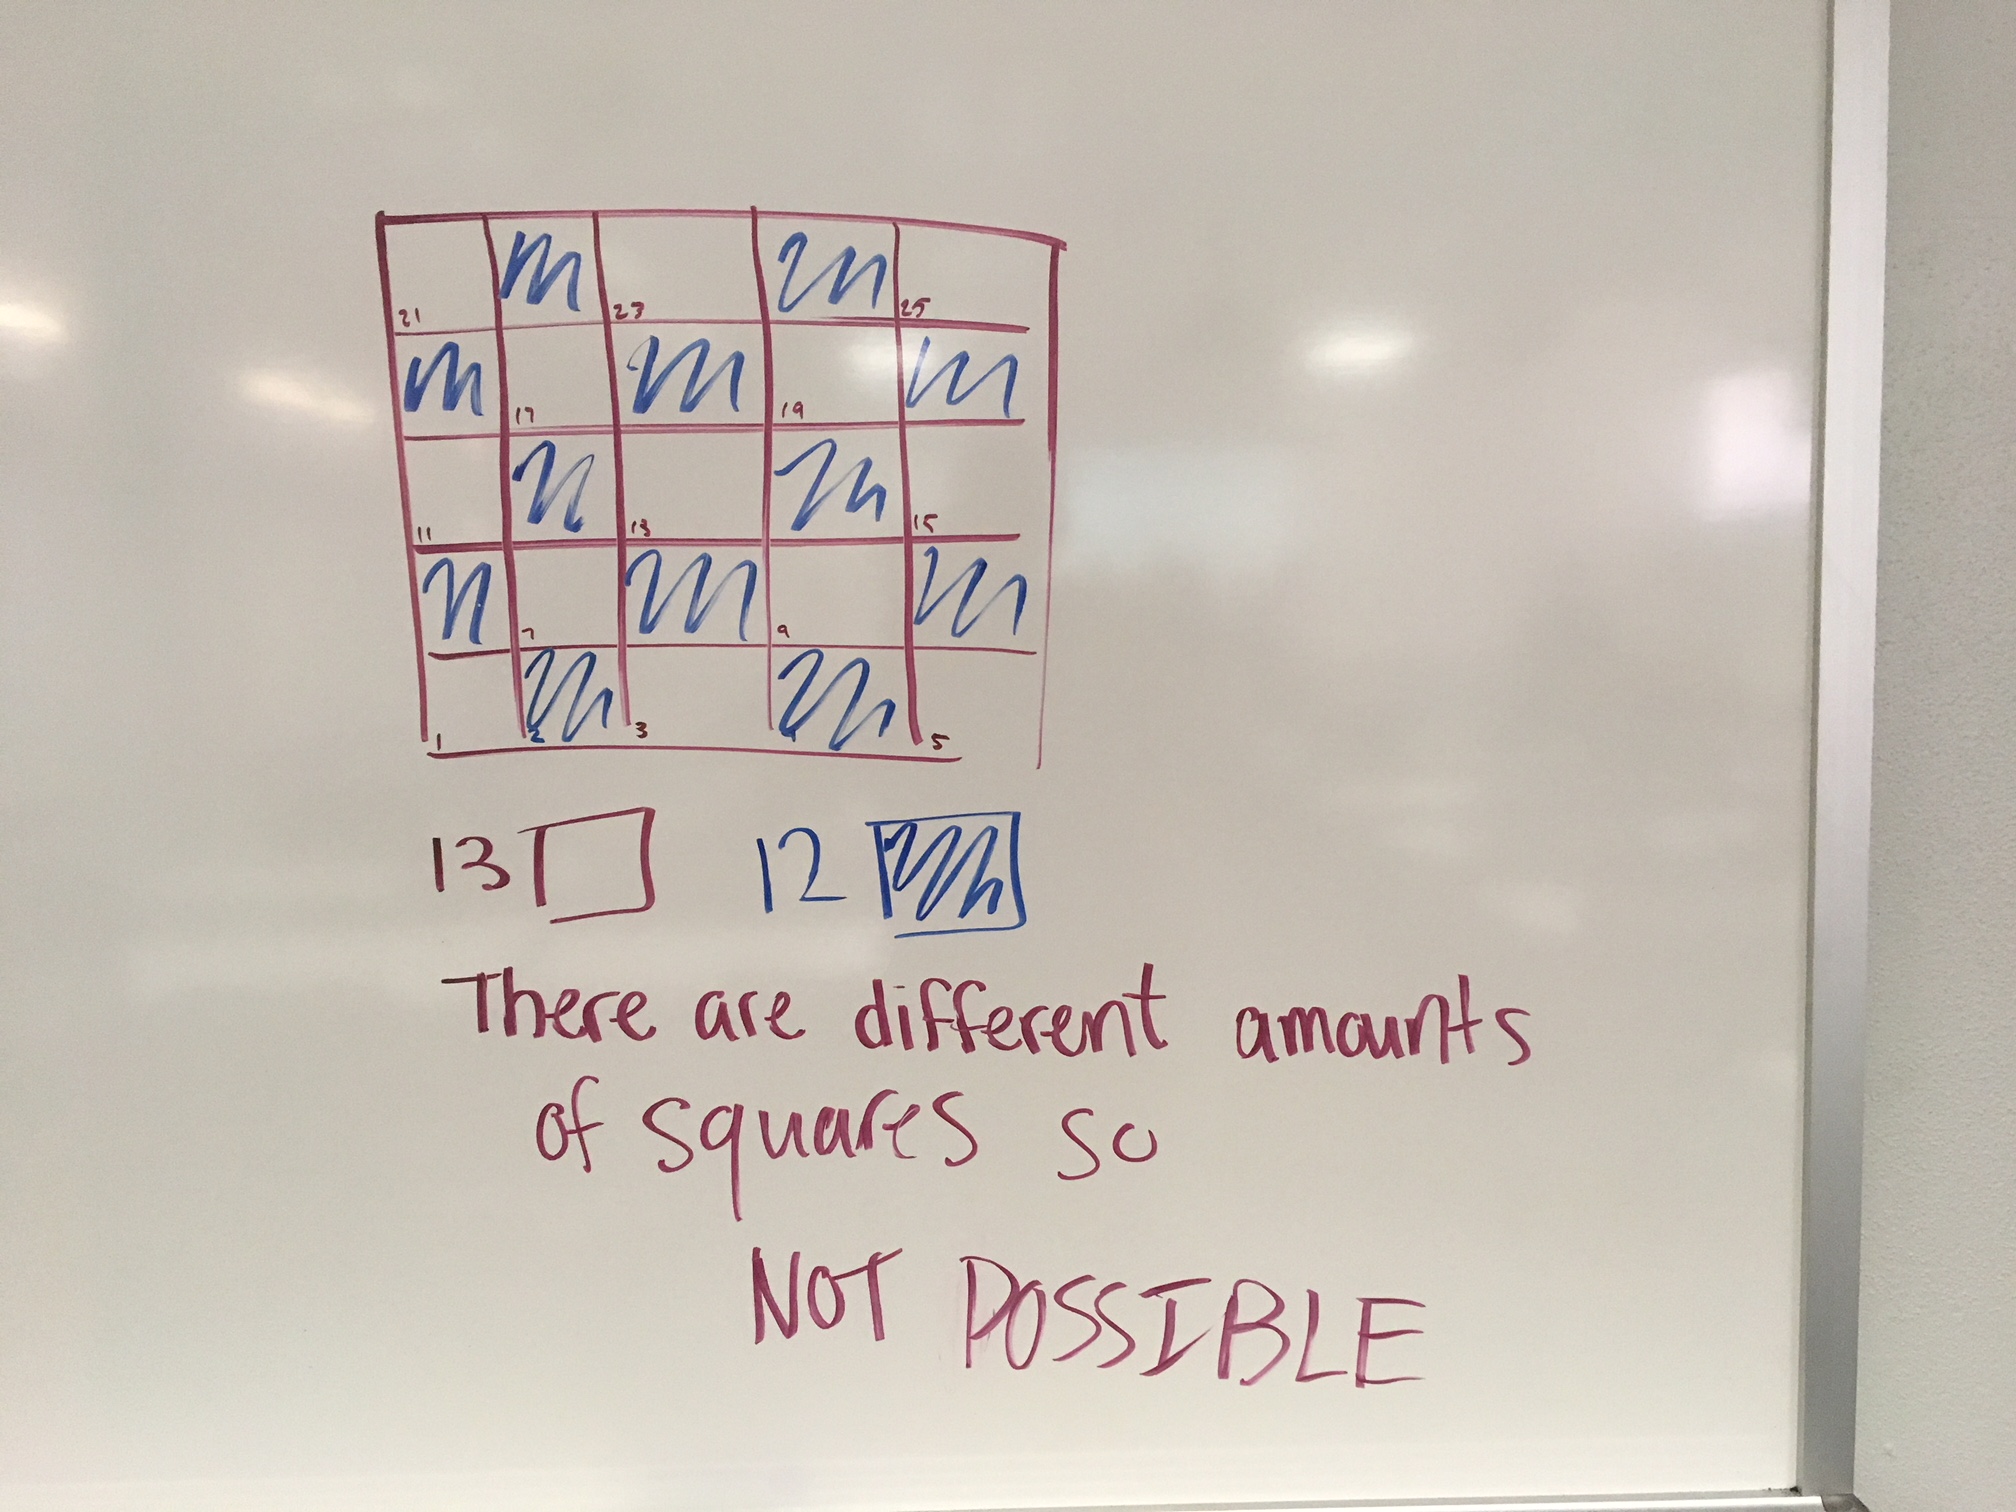 21 23 25
17 19
11 13 15
7 9
1 2 3 4 5
13 12
There are different amounts
of squares so
NOT POSSIBLE